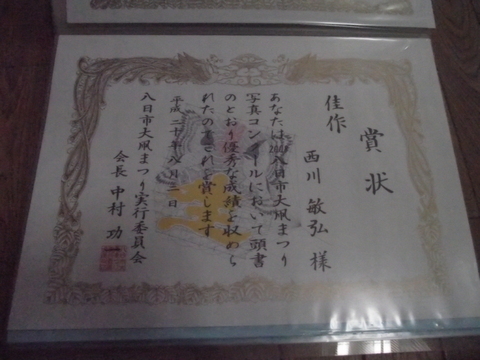 賞状
佳作
西川 敏弘 様
あなたは2008八日市大凧まつり
写真コンクールにおいて頭書
のとおり優秀な成績を収めら
れたのでこれを賞します
平成二十年八月三日
八日市大凧まつり実行委員会
会長 中村 功